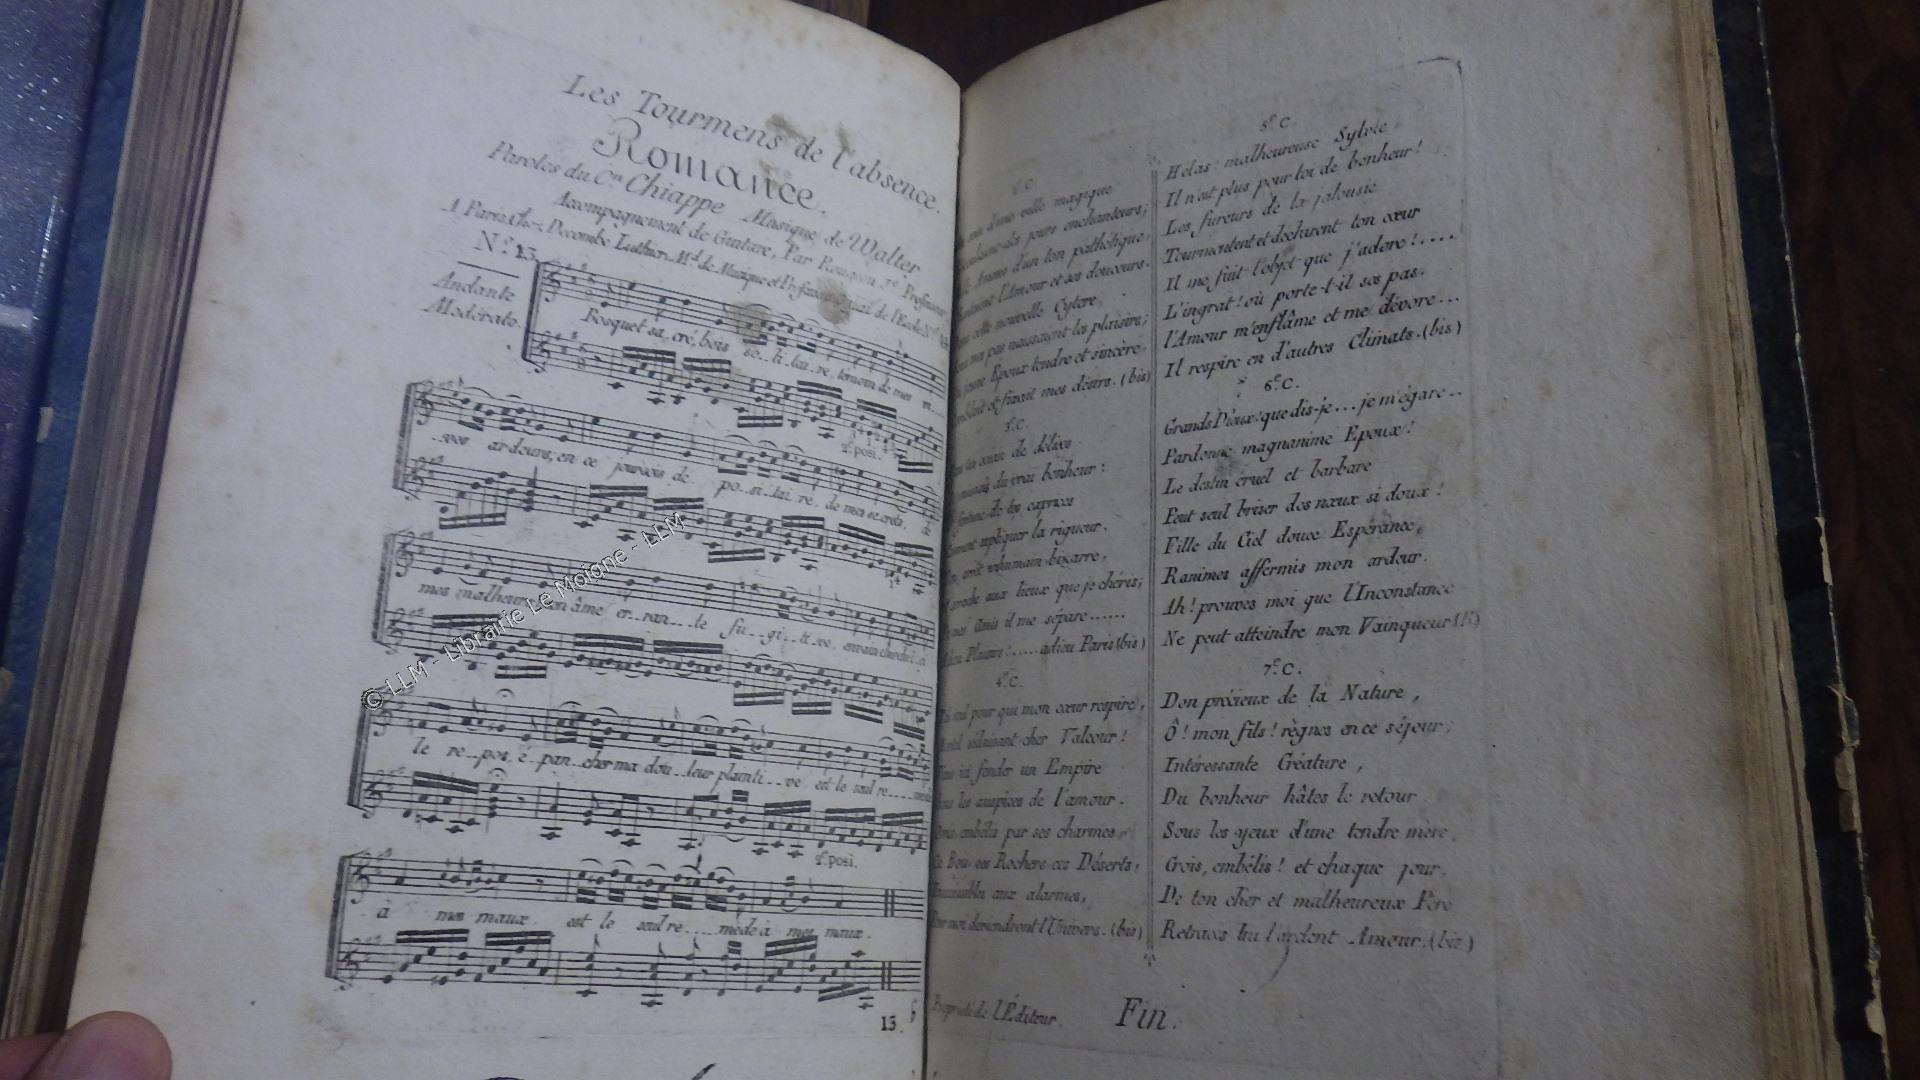 Les Tourmens de l'absence.
Romance.
Paroles du C.en Chiappe Musique de Walter
Accompagnement de Guitare, Par Rougeon J.e Professeur
A Paris, Chez Decombe Luthier, M.d de Musique et Professeur, Quai de l'Ecole
N.o 13
Andante
Modérato.
Bosquet sa,,cré, bois so..li..tai..re, témoin de mes
ardeurs, en ce jour sois dé po..si..tai..re, de mes secrets,
2.e posi.
mes malheurs mon âme er..ran..te fu..gi..ti..ve, envain cherche
le re..pos, é..pan..cher ma dou..leur plainti..ve est le seul re....
2.e posi.
à mes maux est le seul re....mède à mes maux.
13.
2.e C.
d'une ville magique
jours enchanteurs;
d'un ton pathétique,
l'Amour et ses douceurs.
cette nouvelle Cytere,
mes pas naissaient les plaisirs;
jeune Epoux tendre et sincère,
et fixait mes désirs. (bis)
3.e C.
de délices
du vrai bonheur:
fortune de tes caprices
expliquer la rigueur.
arrêt inhumain bizarre,
aux lieux que je chéris;
Amis il me sépare......
Plaisirs!.....adieu Paris (bis)
4.e C.
seul pour qui mon cœur respire,
séduisant cher Valcour!
ici fonder un Empire
les auspices de l'amour.
embélis par ses charmes,
Ces Bois ces Rochers ces Déserts,
aux alarmes,
Pour moi deviendront l'Univers. (bis)
Propriété de l'Éditeur.
5.e C.
Helas! malheureuse Sylvie
Il n'est plus pour toi de bonheur!
Les fureurs de la jalousie
Tourmentent et déchirent ton cœur
Il me fuit l'objet que j'adore!....
L'ingrat! où porte-t-il ses pas.
l'Amour m'enflâme et me dévore...
Il respire en d'autres Climats. (bis)
6.e C.
Grands Dieux! que dis-je... je m'égare..
Pardonne magnanime Epoux!
Le destin cruel et barbare
Peut seul briser des nœux si doux!
Fille du Ciel douce Espérance,
Ranimes affermis mon ardeur.
Ah! prouves moi que l'Inconstance
Ne peut atteindre mon Vainqueur (B)
7.e C.
Don précieux de la Nature,
Ô! mon fils! règnes en ce séjour;
Intéressante Créature,
Du bonheur hâtes le retour
Sous les yeux d'une tendre mère,
Crois, embélis! et chaque jour,
De ton cher et malheureux Père
Retraces lui l'ardent Amour. (bis)
Fin.
© LLM - Librairie Le Moigne - LLM